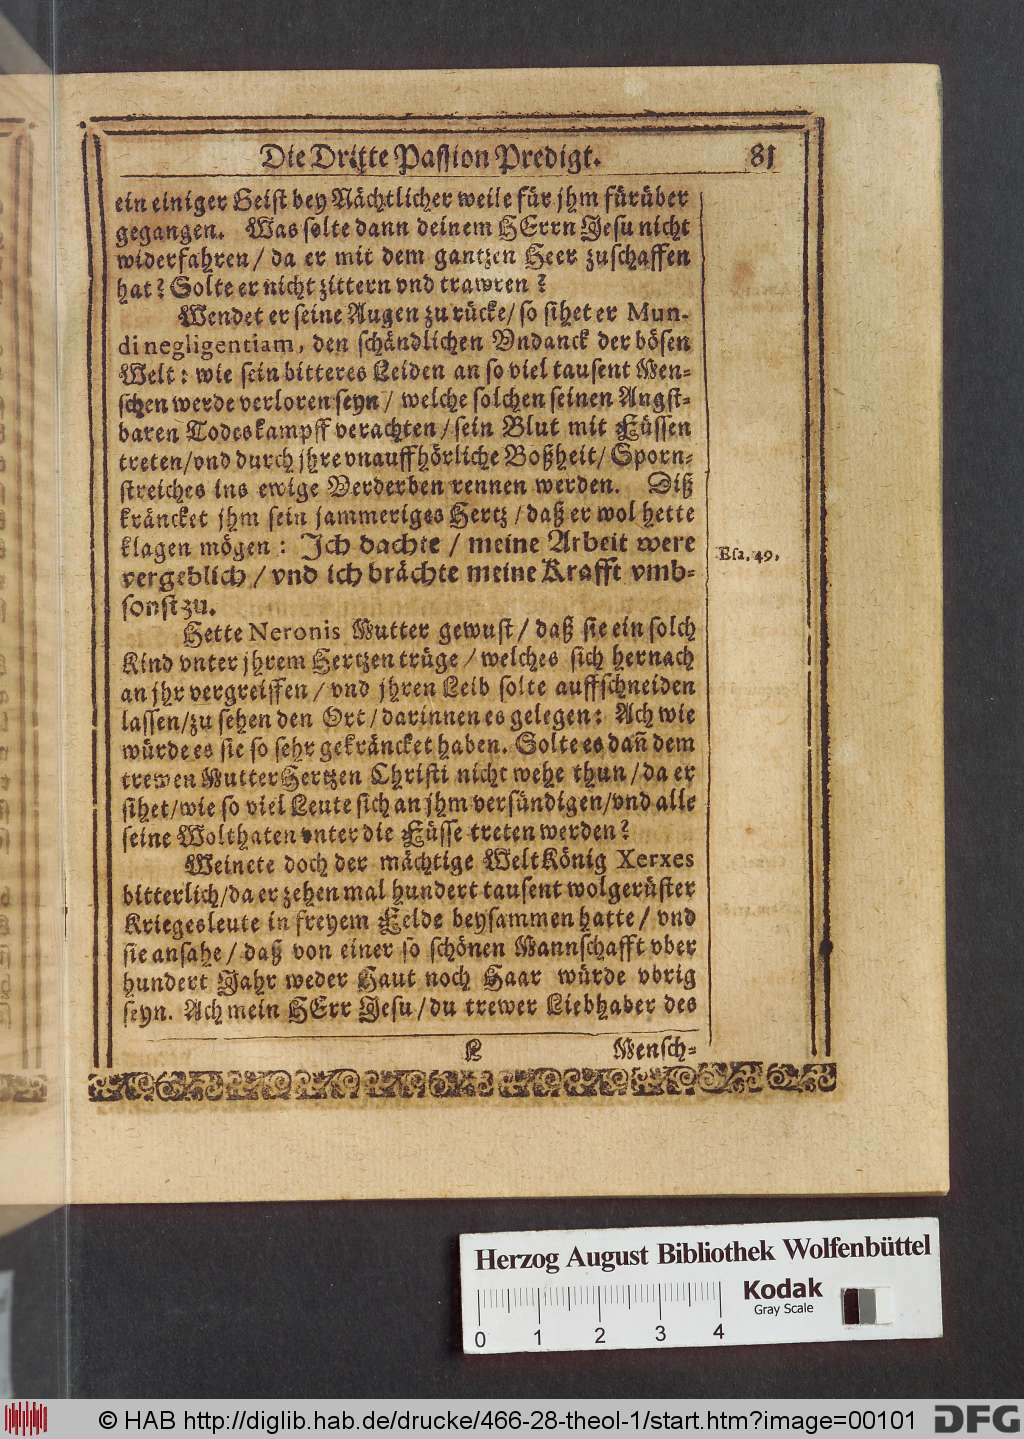 Die Dritte Passion Predigt. 81
ein einiger Geist bey Nächtlicher weile für jhm fürüber
gegangen. Was solte dann deinem HErrn Jesu nicht
widerfahren / da er mit dem gantzen Heer zuschaffen
hat? Solte er nicht zittern vnd trawren?
Wendet er seine Augen zu rücke / so sihet er Mun-
di negligentiam, den schändlichen Vndanck der bösen
Welt: wie sein bitteres Leiden an so viel tausent Men-
schen werde verloren seyn / welche solchen seinen Angst-
baren Todeskampff verachten / sein Blut mit Füssen
treten / vnd durch jhre vnauffhörliche Boßheit / Sporn-
streiches ins ewige Verderben rennen werden. Diß
kräncket jhm sein jammeriges Hertz / daß er wol hette
klagen mögen: Ich dachte / meine Arbeit were
vergeblich / vnd ich brächte meine Krafft vmb-
sonst zu.
Esa. 49.
Hette Neronis Mutter gewust / daß sie ein solch
Kind vnter jhrem Hertzen trüge / welches sich hernach
an jhr vergreiffen / vnd jhren Leib solte auffschneiden
lassen / zu sehen den Ort / darinnen es gelegen: Ach wie
würde es sie so sehr gekräncket haben. Solte es dañ dem
trewen MutterHertzen Christi nicht wehe thun / da er
sihet / wie so viel Leute sich an jhm versündigen / vnd alle
seine Wolthaten vnter die Füsse treten werden?
Weinete doch der mächtige WeltKönig Xerxes
bitterlich / da er zehen mal hundert tausent wolgerüster
Kriegesleute in freyem Felde beysammen hatte / vnd
sie ansahe / daß von einer so schönen Mannschafft vber
hundert Jahr weder Haut noch Haar würde vbrig
seyn. Ach mein HErr Jesu / du trewer Liebhaber des
L Mensch-
Herzog August Bibliothek Wolfenbüttel
Kodak
Gray Scale
0 1 2 3 4
© HAB http://diglib.hab.de/drucke/466-28-theol-1/start.htm?image=00101
DFG